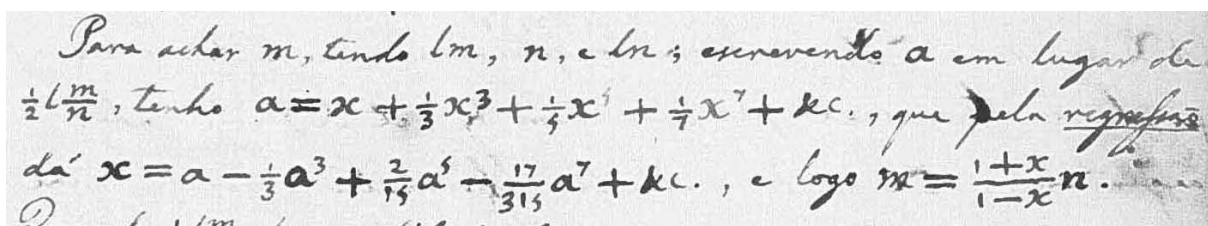 Para achar m, tendo lm, n, e ln; escrevendo a em lugar de
½l m/n, tenho a = x + ⅓x³ + ⅕x⁵ + 1/7 x⁷ + &c., que pela regressaõ
dá x = a − ⅓a³ + 2/15 a⁵ − 17/315 a⁷ + &c., e logo m = (1+x)/(1−x) n.